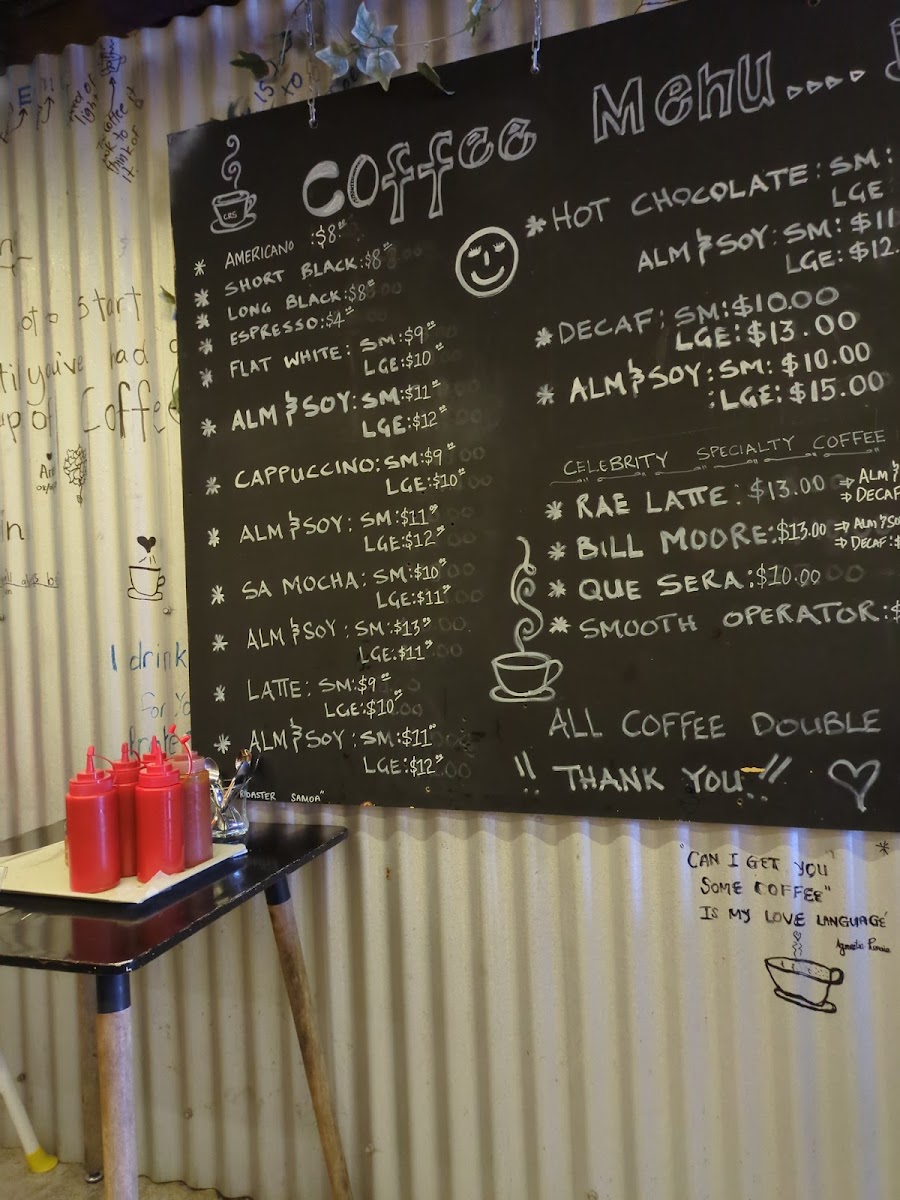 Coffee Menu....
CRS
* AMERICANO :$8⁰⁰
* SHORT BLACK:$8⁰⁰
* LONG BLACK:$8⁰⁰
* ESPRESSO:$4⁰⁰
* FLAT WHITE: SM:$9⁰⁰
LGE:$10⁰⁰
* ALM & SOY: SM:$11⁰⁰
LGE:$12⁰⁰
* CAPPUCCINO: SM:$9⁰⁰
LGE:$10⁰⁰
* ALM & SOY: SM:$11⁰⁰
LGE:$12⁰⁰
* SA MOCHA: SM:$10⁰⁰
LGE:$11⁰⁰
* ALM & SOY: SM:$13⁰⁰
LGE:$11⁰⁰
* LATTE: SM:$9⁰⁰
LGE:$10⁰⁰
* ALM & SOY: SM:$11⁰⁰
LGE:$12⁰⁰
ROASTER SAMOA"
* HOT CHOCOLATE: SM:
LGE
ALM & SOY: SM: $11
LGE: $12.
* DECAF: SM:$10.00
LGE:$13.00
* ALM & SOY: SM: $10.00
:LGE:$15.00
CELEBRITY SPECIALTY COFFEE
* RAE LATTE: $13.00 ⇒ ALM &
⇒ DECAF
* BILL MOORE:$13.00 ⇒ ALM & SO
⇒ DECAF:$
* QUE SERA:$10.00
* SMOOTH OPERATOR:$
ALL COFFEE DOUBLE
!! THANK YOU!!
start
you've had
up of Coffee
I drink
for yo
"CAN I GET YOU
SOME COFFEE"
IS MY LOVE LANGUAGE